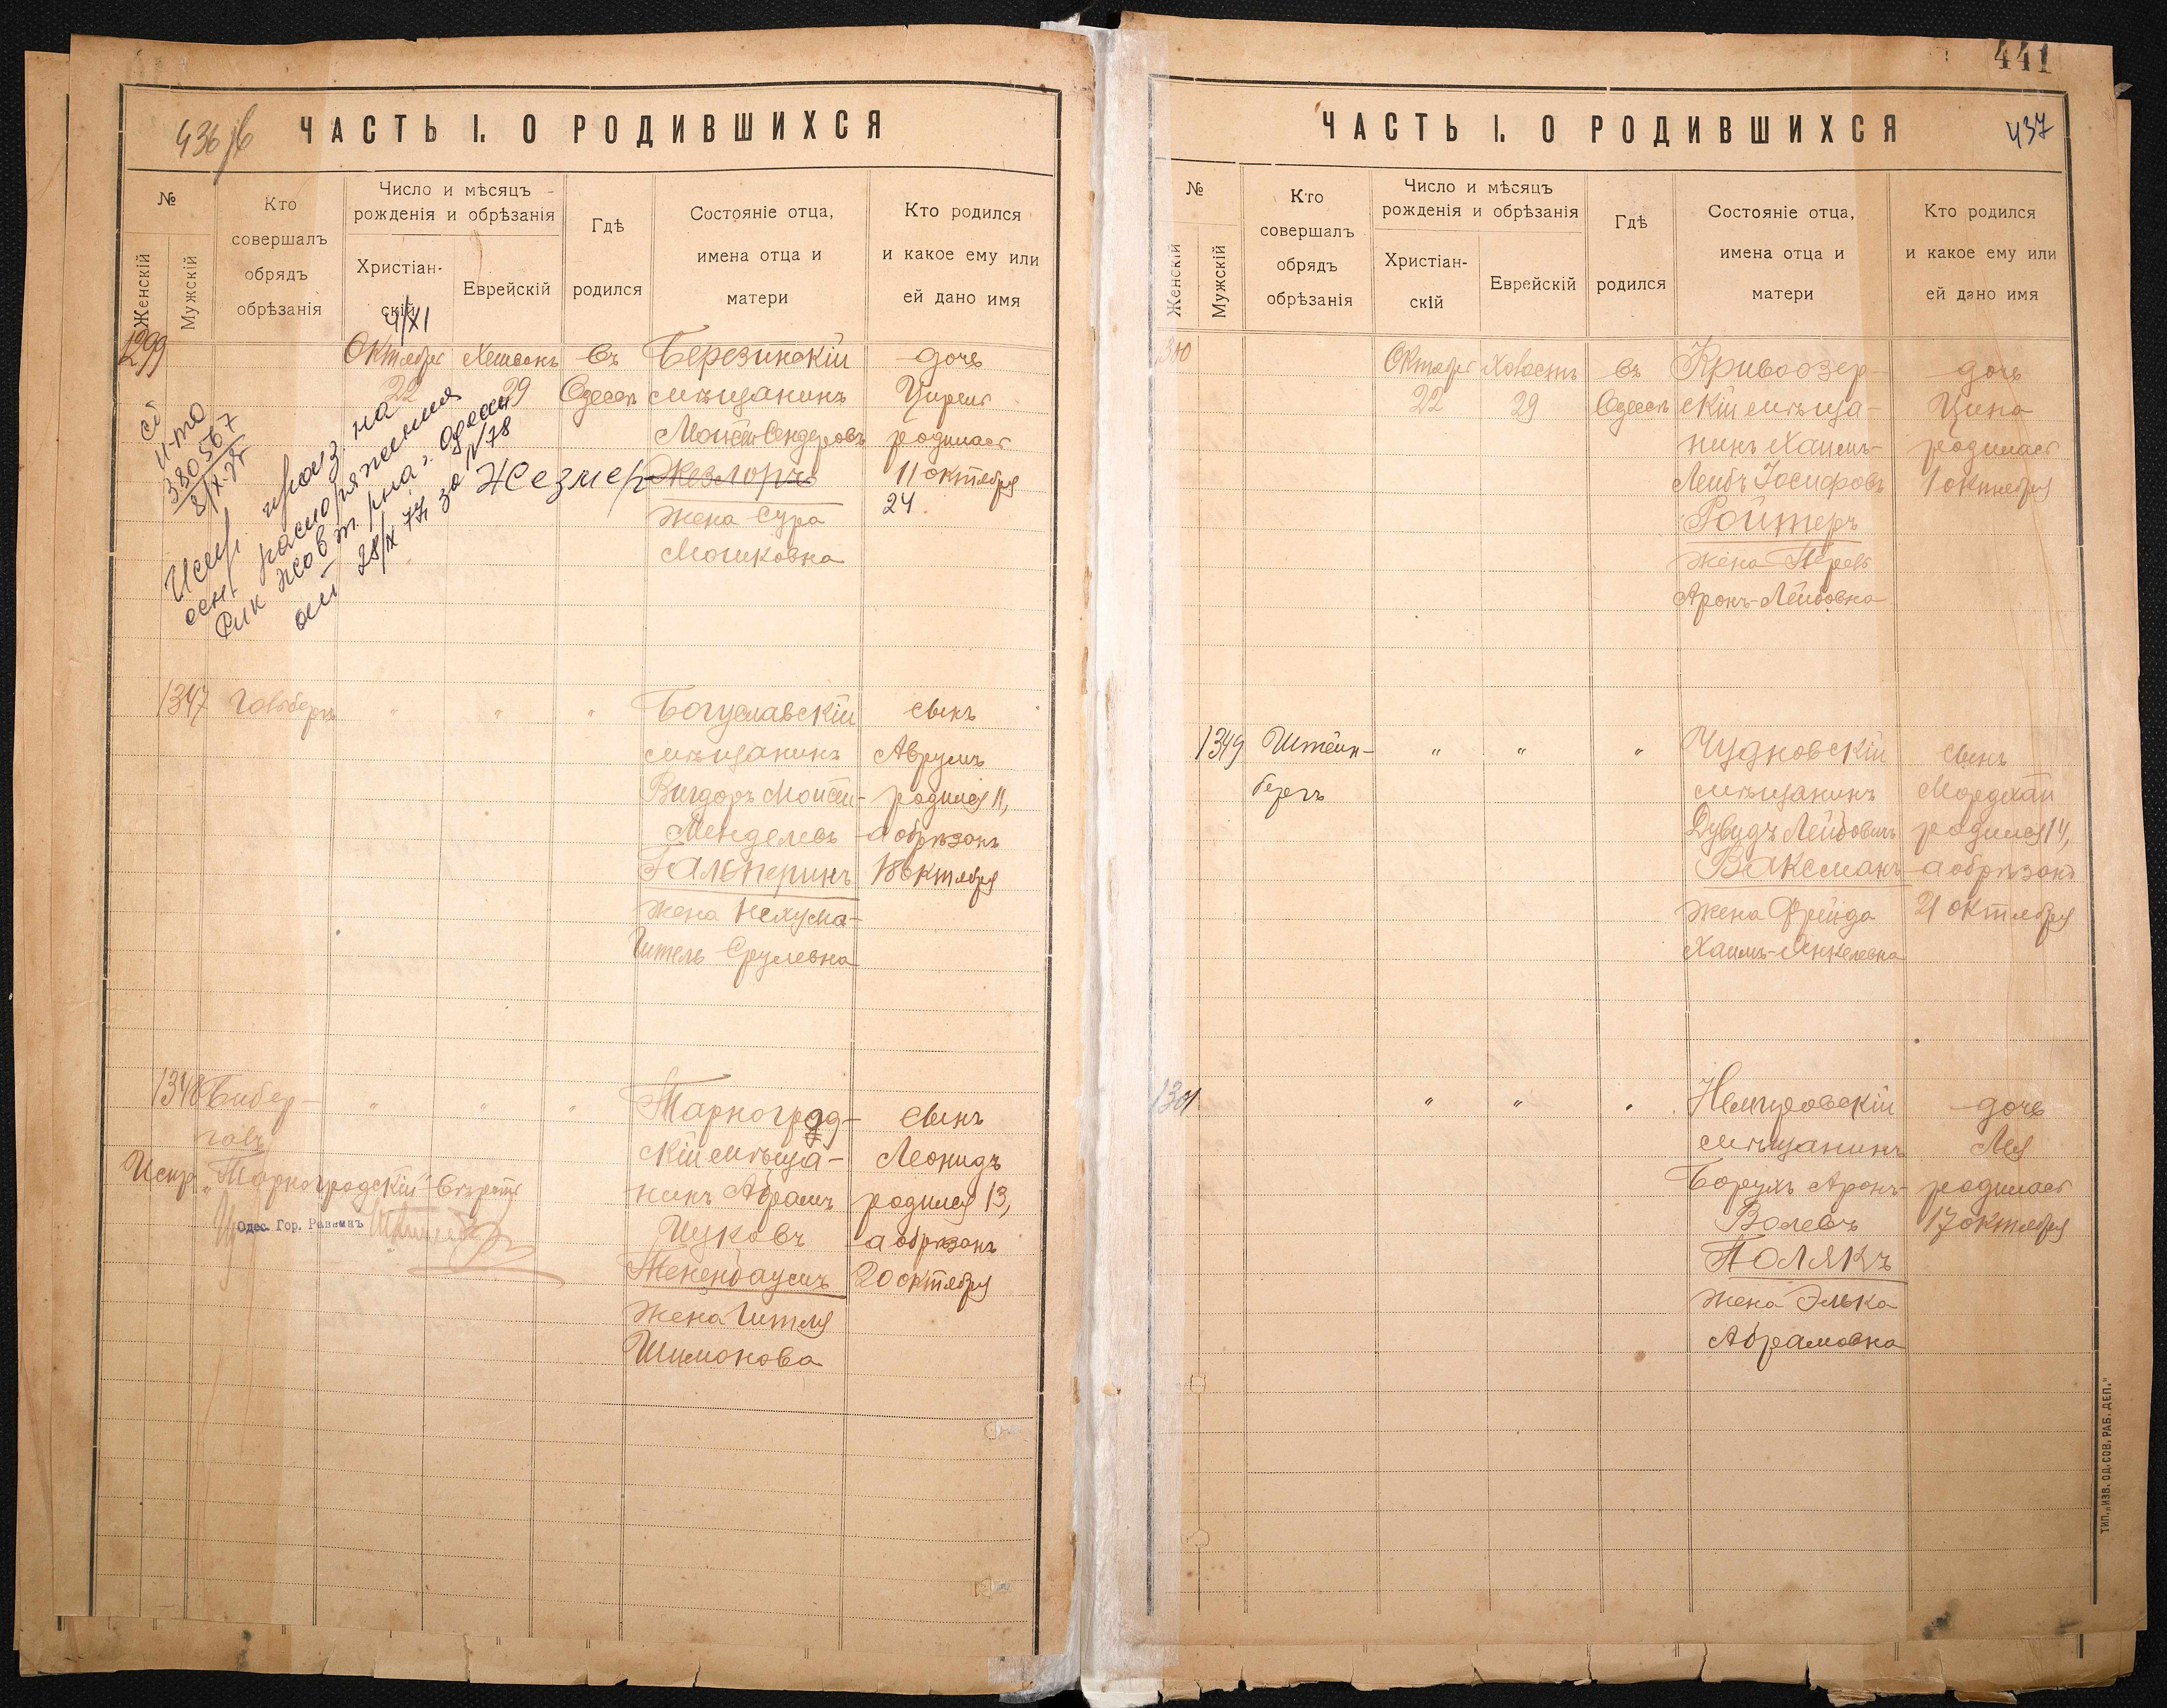 436 об
ЧАСТЬ I. О РОДИВШИХСЯ
№
Женскій
Мужскій
Кто
совершалъ
обрядъ
обрѣзанія
Число и мѣсяцъ
рожденія и обрѣзанія
Христіан-
скій
Еврейскій
Гдѣ
родился
Состояніе отца,
имена отца и
матери
Кто родился
и какое ему или
ей дано имя
4/XI
1299
Октября
22
Хешвонъ
29
въ
Одессѣ
Березинскій
мѣщанинъ
Мойсей Сендеровъ
Жезмер
жена Сура
Мошковна
дочь
Цирель
родилась
11 октября
24
380567
8/X-77г
Испр. произ. на
осн. распоряжения
28/IX 77г за №78
1347
Гольдбергъ
" " "
Богуславскій
мѣщанинъ
Вигдоръ Мойсей-
Менделевъ
Гальперинъ
жена Нехума-
Гитель Срулевна
сынъ
Аврумъ
родился 11,
а обрѣзанъ
18 октября
1348
Бибер-
галь
" " "
Тарноград-
скій мѣща-
нинъ Абрамъ
Цуковъ
Тененбаумъ
жена Гитля
Шимонова
сынъ
Леонидъ
родился 13,
а обрѣзанъ
20 октября
Испр. „Тарноградскій" вѣрить
Одес. Гор. Раввинъ
441
ЧАСТЬ I. О РОДИВШИХСЯ
437
№
Женскій
Мужскій
Кто
совершалъ
обрядъ
обрѣзанія
Число и мѣсяцъ
рожденія и обрѣзанія
Христіан-
скій
Еврейскій
Гдѣ
родился
Состояніе отца,
имена отца и
матери
Кто родился
и какое ему или
ей дано имя
1300
Октября
22
29
въ
Одессѣ
Кривоозер-
скій мѣща-
нинъ Хаимъ-
Лейбъ Іосифовъ
Ройтеръ
жена Перель
Аронъ-Лейбовна
дочь
Цина
родилась
1 октября
1349
Штейн-
бергъ
" " "
Чудновскій
мѣщанинъ
Дувидъ Лейбовичъ
Ваксманъ
жена Фрейда
Хаимъ-Янкелевна
сынъ
Мордхай
родился 14,
а обрѣзанъ
21 октября
1301
" " "
Немировскій
мѣщанинъ
Борухъ Аронъ-
Волевъ
Полякъ
жена Элька
Абрамовна
дочь
Лея
родилась
17 октября
ТИП. „ИЗВ. ОД. СОВ. РАБ. ДЕП."